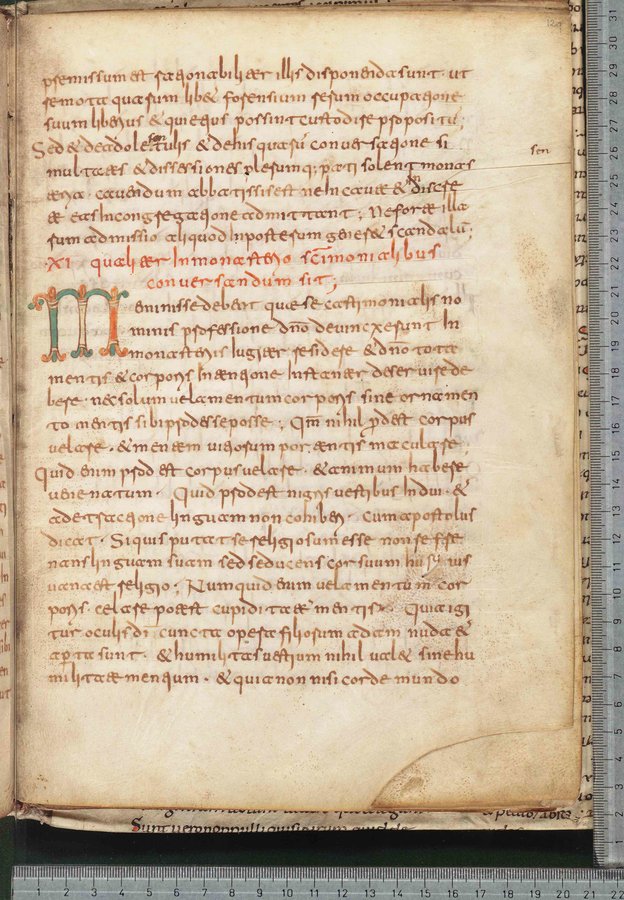 p̄missum est rationabiliter illis disponenda sunt. ut
remota quarum lib& forensium rerum occupatione
suum liberius & quietius possint custodire propositū;
Sed & de adolescentulis & de his quarū conuersatione si
multates & dissessiones plerumq; pati solent monas
teria. cauendum abbatissis est ne Incaute & indiscrete
& eas In congregatione admittant; Ne forte illa
rum admissio aliquod In posterum gener& scandalū;
XI qualiter In monasterio scīmonialibus
conuersandum sit;
Meminisse debent quae se castimonialis no
minis professione dn̄o deuinxerunt In
monasteriis Iugiter residere & dn̄o tota
mentis & corporis Intentione Instanter deseruire de
bere. nec solum uelamentum corporis sine ornamen
to mentis sibi prodesse posse; Qm̄ nihil p̄dest corpus
uelare. & mentem uitiorum portentis maculare;
Quid enim prodest corpus uelare. & animum habere
uenenatum. Quid prodest nigris uestibus Indui. &
a detractione linguam non cohiberi. Cum apostolus
dicat. Si quis putat se religiosum esse non refre
nans linguam suam sed seducens cor suum huius
uana est religio; Numquid enim uelamentum cor
poris. celare potest cupiditates mentis. Quia igi
tur oculis dī cuncta opera filiorum adam nuda &
ap̄ta sunt. & humilitas uestium nihil ual& sine hu
militate mentium. & quia non nisi corde mundo